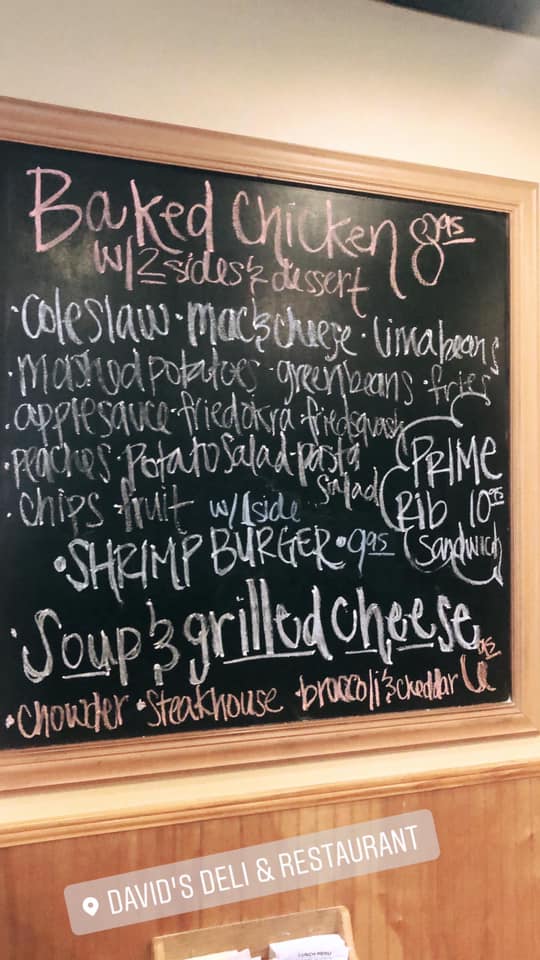 Baked Chicken 8.95
w/2 sides & dessert
·Coleslaw·mac & cheese·lima beans
·mashed potatoes·green beans·fries
·applesauce·fried okra·fried squash
·peaches·potato salad·pasta salad
·chips·fruit
PRIME
Rib 10.95
Sandwich
w/1 side
·SHRIMP BURGER·9.95
·Soup & grilled cheese
·chowder·steakhouse·broccoli & cheddar
DAVID'S DELI & RESTAURANT
LUNCH MENU